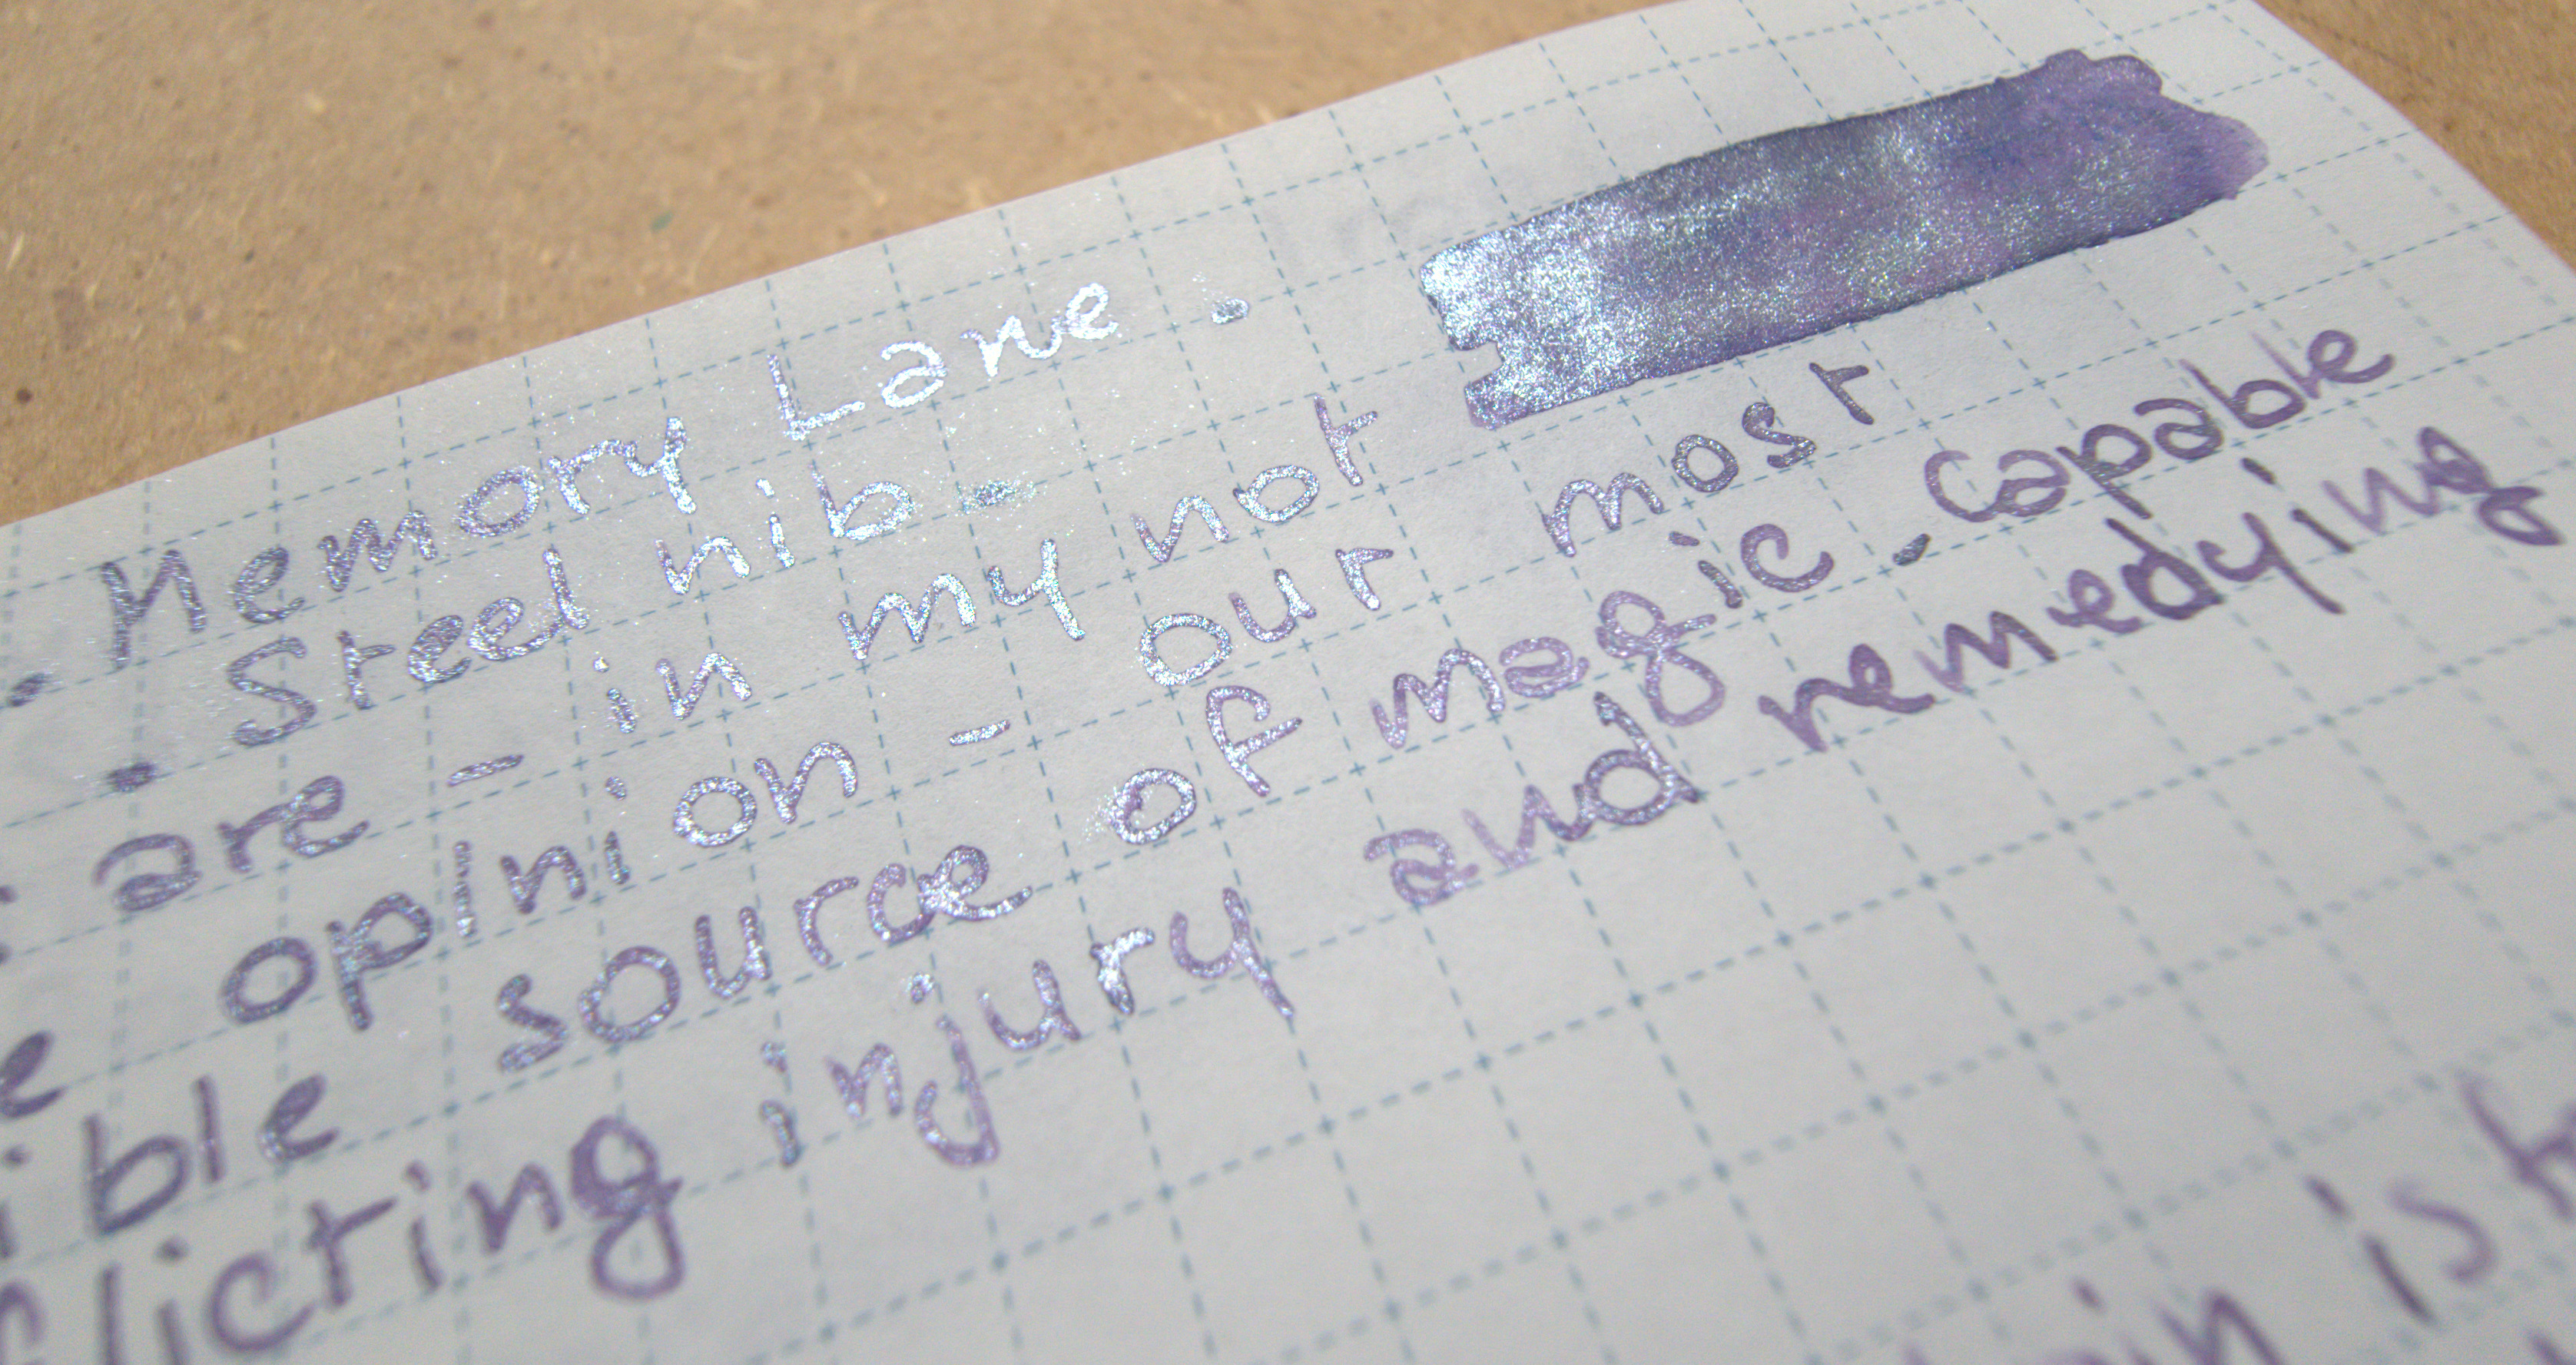 • Memory Lane .
• Steel nib -
are - in my not
opinion - our most
source of magic. capable
injury and remedying
is